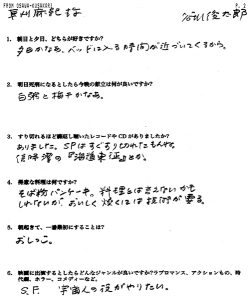 FROM OSAWA-KUSAKABE P. 2
草州麻紀様 谷川俊太郎
1. 朝日と夕日、どちらが好きですか?
夕日かなあ、ベッドに入る時間が近づいてくるから。
2. 明日死神になるとしたら今晩の献立は何が良いですか?
白粥と梅干かなあ。
3. すり切れるほど繰返し聴いたレコードやCDがありましたか?
ありました。SPはすぐすり切れたもんです。
信時潔の『海道東征』とか。
4. 得意な料理は何ですか?
そば粉パンケーキ。料理とは言えないかも
しれないが、おいしく焼くには技術が要る
5. 朝起きて、一番最初にすることは?
おしっこ。
6. 映画に出演するとしたらどんなジャンルが良いですか?ラブロマンス、アクションもの、時
代劇、ホラー、コメディーなど。
S.F. 宇宙人の役がやりたい。